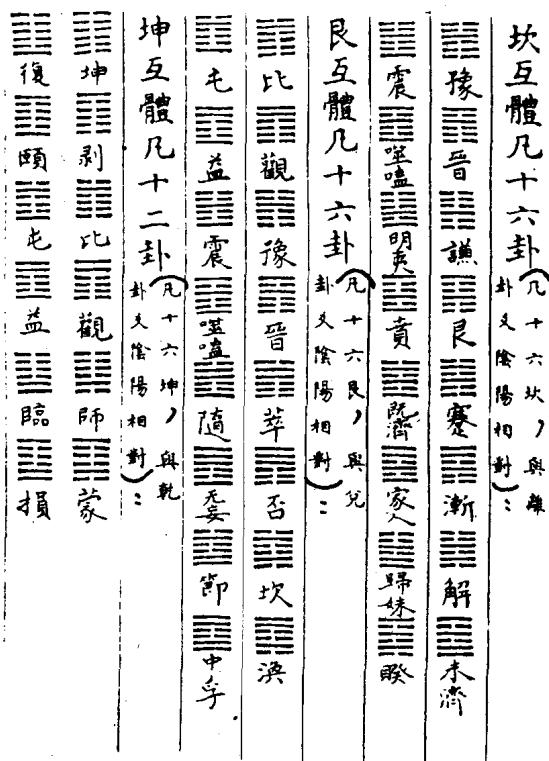 坎互體凡十六卦(凡十六坎，與離卦爻陰陽相對)：
豫 晉 謙 艮 蹇 漸 解 未濟
震 噬嗑 明夷 賁 既濟 家人 歸妹 睽
艮互體凡十六卦(凡十六艮，與兌卦爻陰陽相對)：
比 觀 豫 晉 萃 否 坎 渙
屯 益 震 噬嗑 隨 无妄 節 中孚
坤互體凡十二卦(凡十六坤，與乾卦爻陰陽相對)：
坤 剥 比 觀 師 蒙
復 頤 屯 益 臨 損